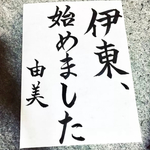 伊東、
始めました
由美